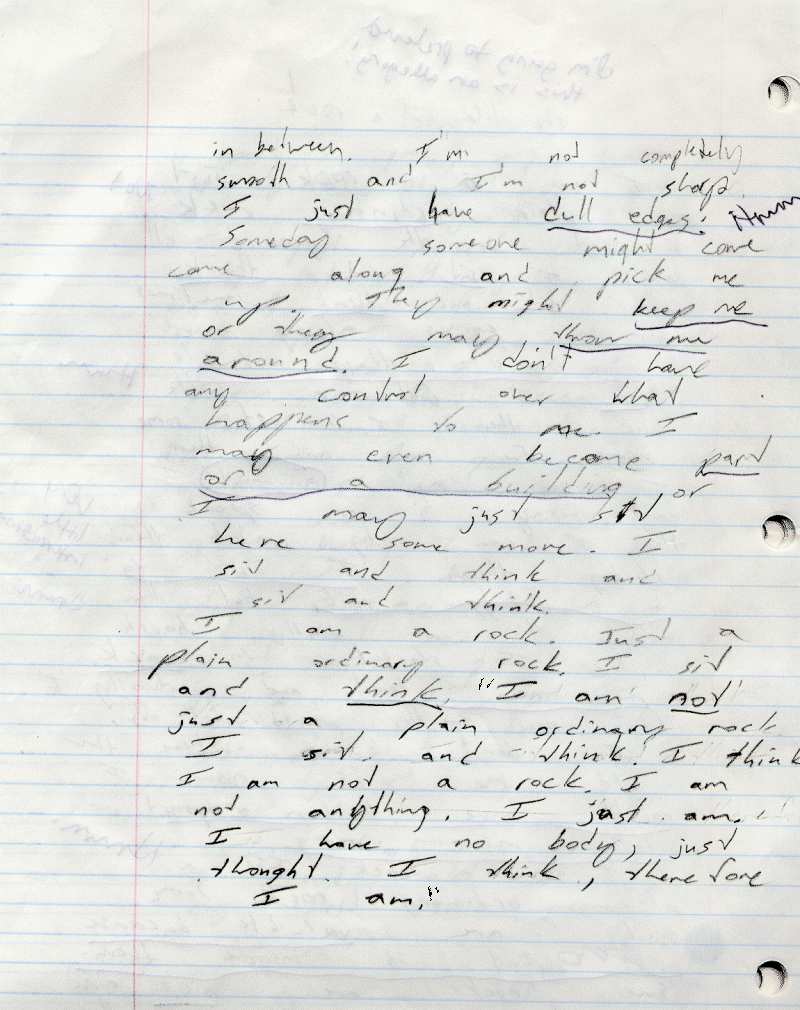 in between. I'm not completely
smooth and I'm not sharp.
I just have dull edges. Hmm
Someday someone might come
come along and pick me
up. They might keep me
or they may throw me
around. I don't have
any control over what
happens to me. I
may even become part
or a building or
I may just sit
here some more. I
sit and think and
sit and think.
I am a rock. Just a
plain ordinary rock. I sit
and think. "I am not
just a plain ordinary rock
I sit and think. I think
I am not a rock. I am
not anything. I just am.
I have no body, just
thought. I think, therefore
I am."